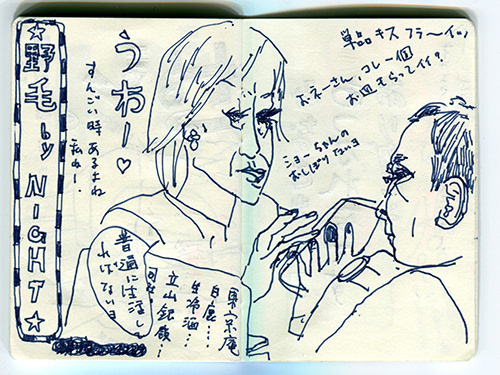 ☆野毛 by NIGHT☆
うわー♡
すんごい時あるよね
普通に生活して
ればないヨ
白鹿…
生冷酒…
立山銀嶺…
単品 キス フラ〜イッ
おネーさん、コレ一個
お皿もらってイイ?
ショーちゃんの
おしぼりないヨ